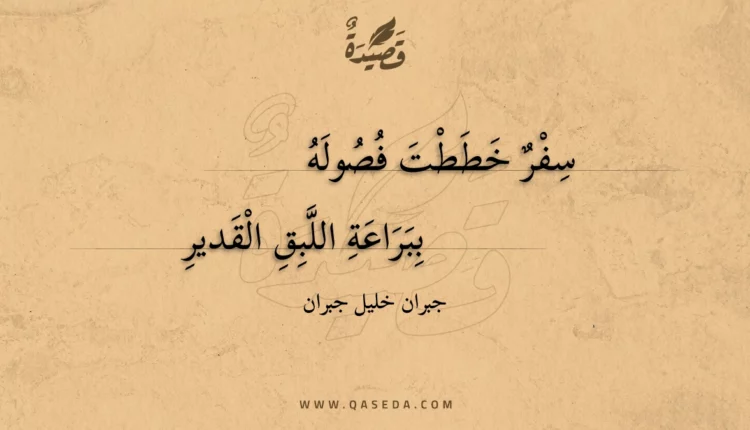 قَصِيْدَةٌ
سِفْرٌ خَطَطْتَ فُصُولَهُ
بِبَرَاعَةِ اللَّبِقِ الْقَديرِ
جبران خليل جبران
WWW.QASEDA.COM